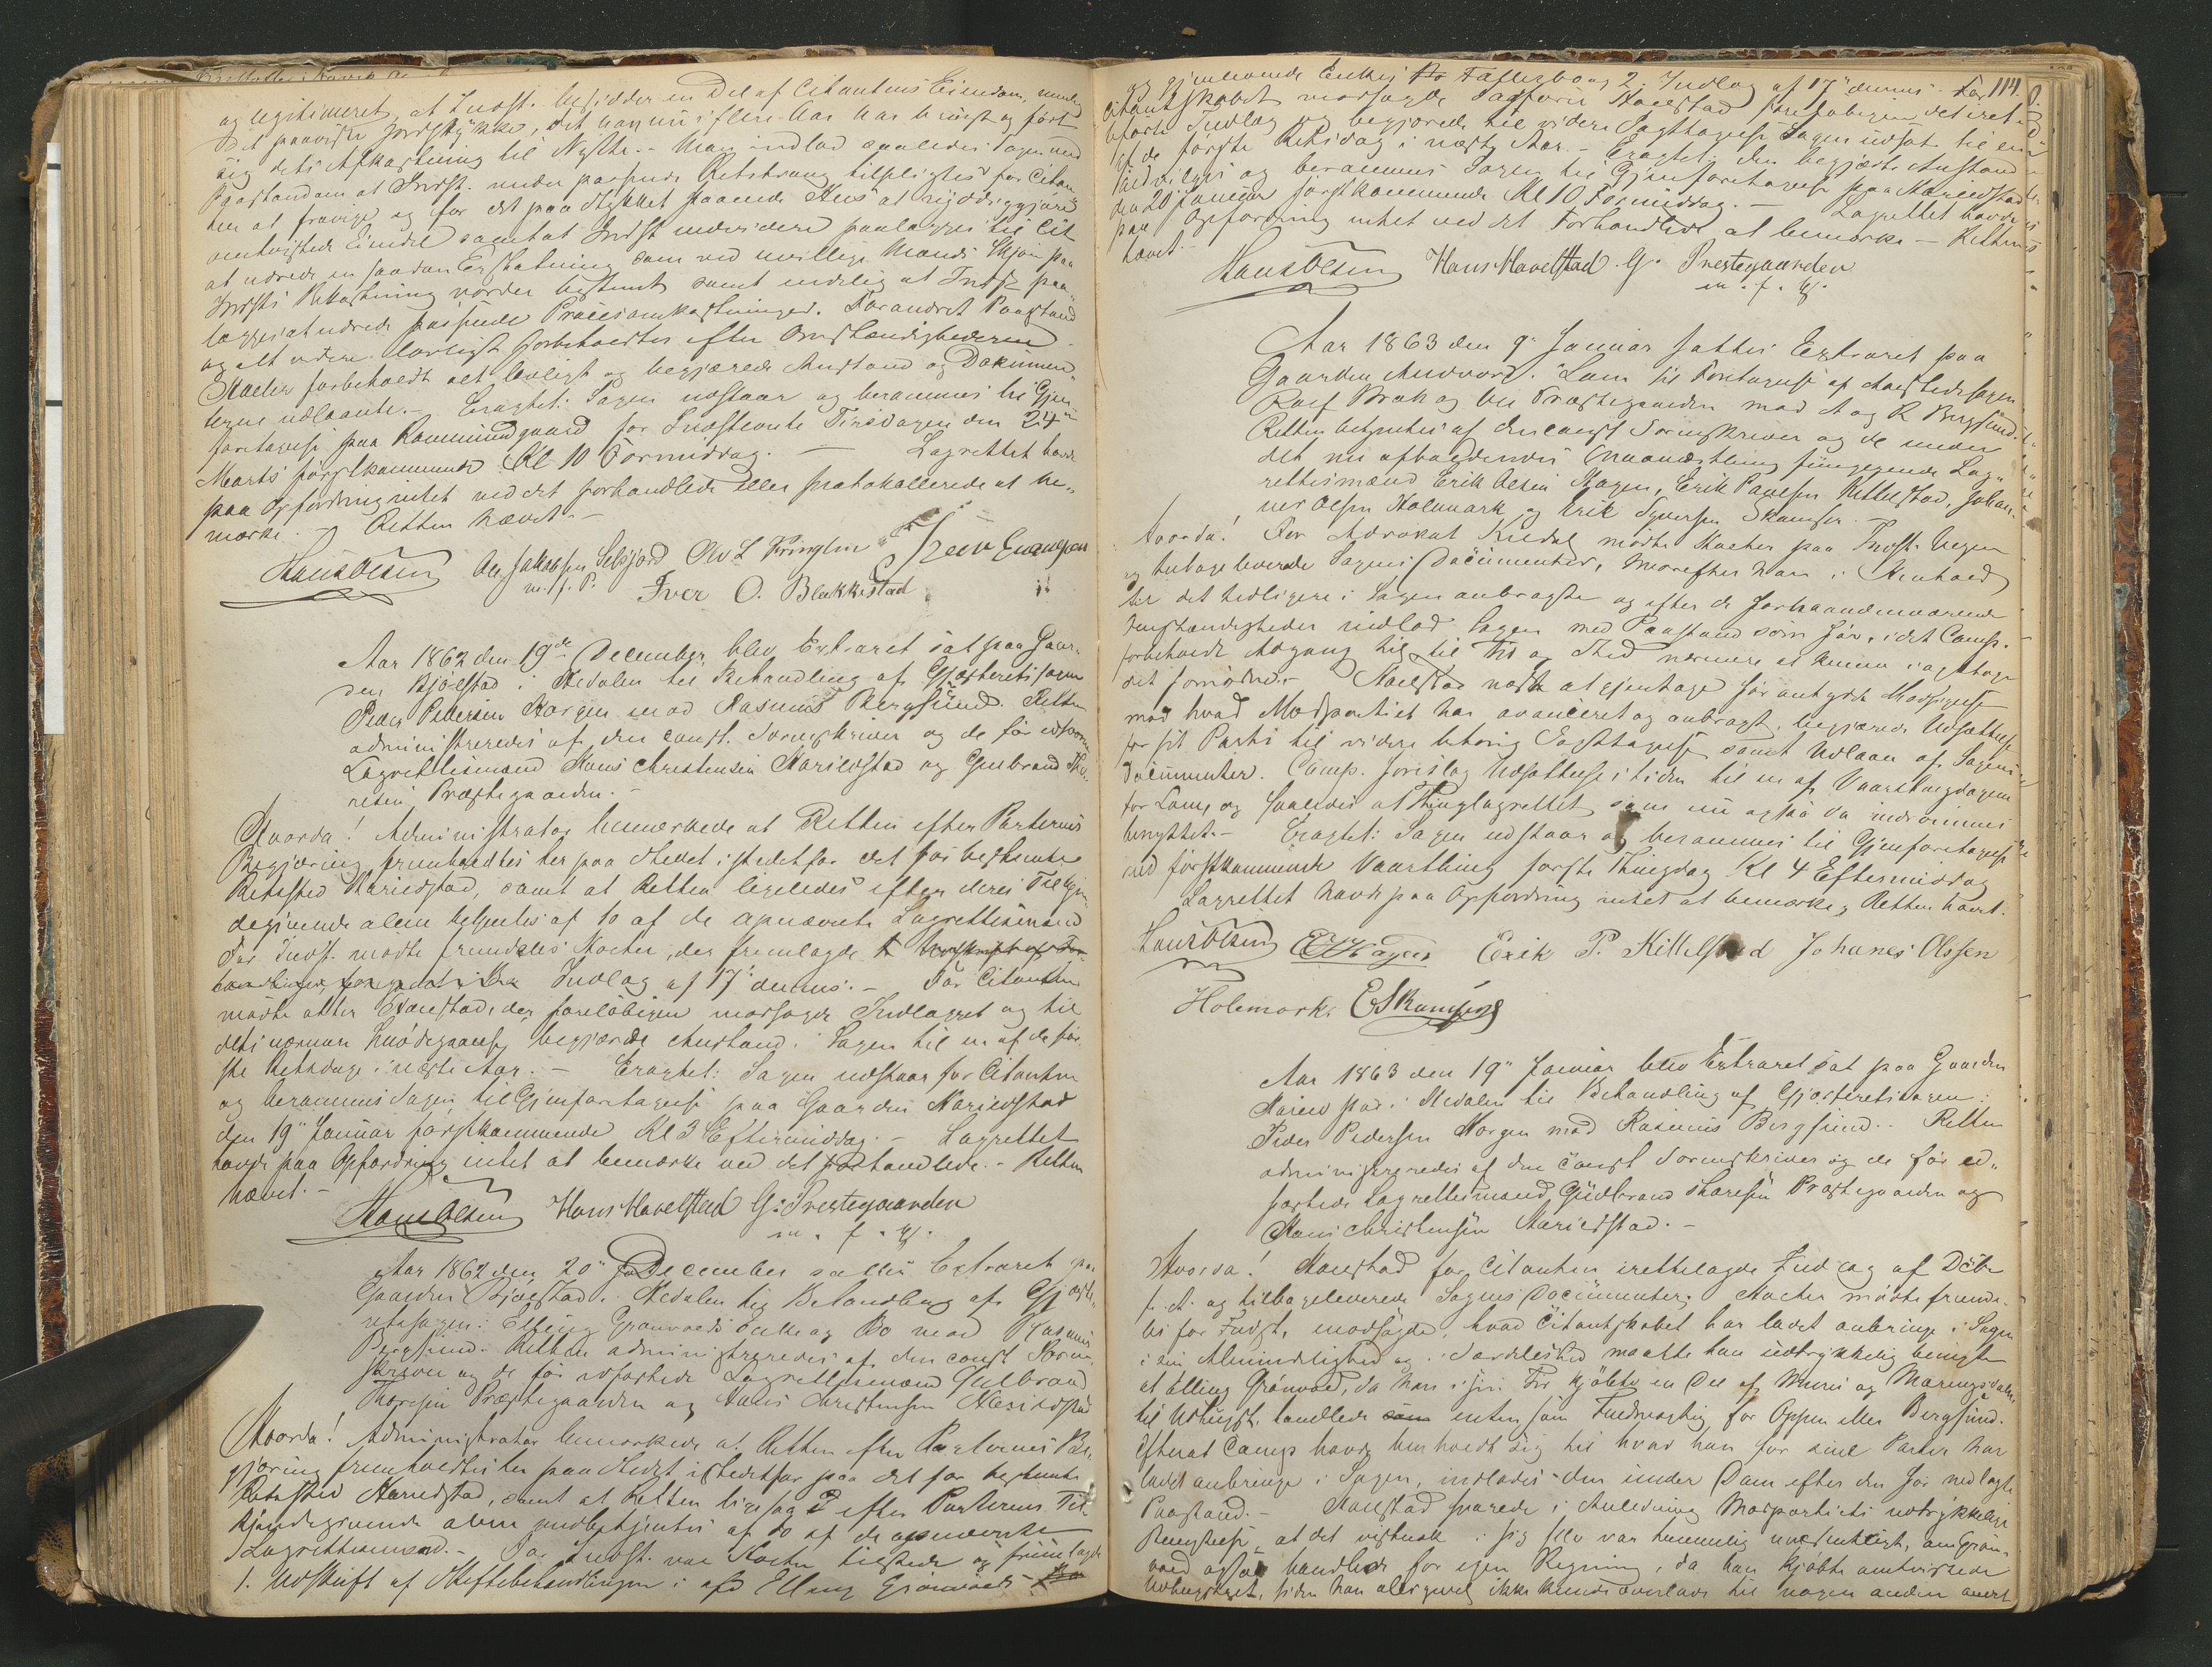 og legitimeret, at Indst. besidder en Del af Citantens Eiendom, nemlig
det paaviste Jordstykke, det han nu i flere Aar har brugt og ført
sig dets Afkastning til Nytte. - Man indlod saaledes Sagen med
Paastand om at Indst. under passende Retstvang tilpligtes for Citan-
ten at fravige og for det paa Stykket staaende Huus at ryddiggjøre
omtvistede Eiendel samt at Indst. underviden paalægges til Cit.
at udrede en saadan Erstatning som ved uvillige Mænds Skjøn paa
Indsts Bekostning vorder bestemt samt endelig at Indst. paa-
lægges at udrede passende Procesomkostninger. Forandret Paastand
og alt videre lovligt forbeholdtes efter Omstændighederne.
Stacher forbeholdt alt lovligt og begjærede Anstand og Dokumen-
terne udlaante. - Eragtet: Sagen udstaar og berammes til Gjen-
foretagelse paa Kommundgaard for Indstevnte Tirsdagen den 24
Marts førstkommende Kl 10 Formiddag. - Lagrettet havde
paa Opfordring intet ved det forhandlede eller protokollerede at be-
mærke. Retten hævet. -
Hans Olsen Ole Jakobsen Selsjord Ole L Kringlen Iver Evensen
m. f. P. Iver O. Blekkestad
Aar 1862 den 19de December blev Extraret sat paa Gaar-
den Bjølstad i Hedalen til Behandling af Gjesteretssagen
Peder Pedersen Horgen mod Rasmus Bergsund. Retten
administreredes af den const. Sorenskriver og de før edsvorne
Lagrettesmænd Hans Christensen Harildstad og Gulbrand Tho-
resen Præstegaarden. -
Hvorda! Administrator bemærkede at Retten efter Parternes
Begjæring fremholdtes her paa Stedet istedetfor det før bestemte
Retssted Harildstad, samt at Retten ligeledes efter deres Tilkjen-
degivende alene betjentes af to af de opnævnte Lagrettesmænd
For Indst. mødte fremdeles Stacher, der fremlagde
Indlæg af 17" dennes. - For Citanten
mødte atter Haelstad, der foreløbigen modsagde Indlægget og til
dets nærmere Imødegaaelse begjærede Anstand i Sagen til en af de før-
ste Retsdage i næste Aar. - Eragtet: Sagen udstaar for Citanten
og berammes Sagen til Gjenforetagelse paa Gaarden Harildstad
den 19" Januar førstkommende Kl 3 Eftermiddag. - Lagrettet
havde paa Opfordring intet at bemærke ved det forhandlede. - Retten
hævet. -
Hans Olsen Hans Harelstad G. Prestegaarden
m. f. P.
Aar 1862 den 20" December sattes Extraret paa
Gaarden Bjølstad i Hedalen til Behandling af Gjeste-
retssagen: Elling Grønvolds Enke og Bo mod Rasmus
Bergsund. Retten administreredes af den const Soren-
skriver og de før edfæstede Lagrettesmænd Gulbrand
Thoresen Præstegaarden og Hans Christensen Harildstad
Hvorda! Administrator bemærkede at Retten efter Parternes Be-
gjæring fremholdtes her paa Stedet istedetfor paa det før bestemte
Retssted Harildstad, samt at Retten ligesaa efter Parternes Til-
kjendegivende alene betjentes af to af de opnævnte
Lagrettesmænd. - For Indst. var Stacher tilstede og fremlagde
1. Udskrift af Skiftebehandlingen i afd Elling Grønvolds
114.
og gjenlevende Enkes Fællesbo og 2. Indlæg af 17" dennes. For
Citantskabet modsagde Sagfører Haelstad foreløbigen det iret-
lagte Indlæg og begjærede til videre Iagttagelse Sagen udsat til en
af de første Retsdage i næste Aar. - Eragtet: den begjærte Anstand
bevilges og berammes Sagen til Gjenforetagelse paa Harildstad
den 20 Januar førstkommende Kl 10 Formiddag. - Lagrettet havde
paa Opfordring intet ved det Forhandlede at bemærke - Retten
hævet. -
Hans Olsen Hans Harelstad G. Prestegaarden
m. f. P.
Aar 1863 den 9" Januar sattes Extraret paa
Gaarden Andvord i Lom til Foretagelse af Aastedssagen
Rolf Brak og Ole Præstegaarden mod A og R Bergsund.
Retten betjentes af den const Sorenskriver og de under
det nu afholdendes Maanedsthing fungerende Lag-
rettesmænd Erik Olsen Hagen, Erik Paulsen Kittelstad, Johan-
nes Olsen Holemark og Erik Syversen Skamser. -
Hvorda! For Advokat Riedel mødte Stacher paa Indst. Vegne
og tilbageleverede Sagens Documenter, hvorefter han i Henhold
til det tidligere i Sagen anbragte og efter de forhaandenværende
Omstændigheder indlod Sagen med Paastand som før, idet Comp.
forbeholdt Adgang til til Tid og Sted nærmere at kunne iagttage
det fornødne. - Haelstad næst at gjentage før antydede Modsigelse
mod hvad Modpartiet har avanceret og anbragt, begjærede Udsættelse
for sit Parti til videre behørig Iagttagelse samt Udlaan af Sagens
Documenter. Comp. foreslog Udsættelse i tiden til en af Vaarthingdagene
for Lom, og saaledes at Thinglagrettet som nu ogsaa da indrømmes
benyttet. - Eragtet: Sagen udstaar og berammes til Gjenforetagelse
ved førstkommende Vaarthing første Thingdag Kl 4 Eftermiddag
Lagrettet havde paa Opfordring intet at bemærke, Retten hævet.
Hans Olsen E O Hagen Erik P. Kittelstad Johanes Olssen
Holemork. E S Skamser
Aar 1863 den 19" Januar blev Extraret sat paa Gaarden
Harildstad i Hedalen til Behandling af Gjesteretssagen:
Peder Pedersen Horgen mod Rasmus Bergsund. - Retten
administreredes af den const Sorenskriver og de før ed-
fæstede Lagrettesmænd, Gudbrand Thoresen Præstegaarden og
Hans Christensen Harildstad. -
Hvorda! Haelstad for Citanten irettelagde Indlæg af Dato
f. A. og tilbageleverede Sagens Documenter. Stacher mødte frem-
les for Indst, modsagde, hvad Citantskabet har ladet anbringe i Sagen
i sin Almindelighed og i Særdeleshed maatte han udtrykkelig benegte
at Elling Grønvold, da han i sin Tid kjøbte en Del af Muren og
til Udhugst, handlede enten som Fuldmægtig for Oppen eller Bergsund.
Efterat Comp havde henholdt sig til hvad han for sine Parter har
ladet anbringe i Sagen, indlodes den under Dom efter den før nedlagte
Paastand. - Haelstad svarede i Anledning Modpartiets udtrykkelige
Benegtelse, at det vistnok i sig selv var temmelig uvæsentligt, om Grøn-
vold ogsaa handlede for egen Regning, da han kjøbte omtvistede
Udhugst, siden han alligevel ikke kunde overlade til nogen anden